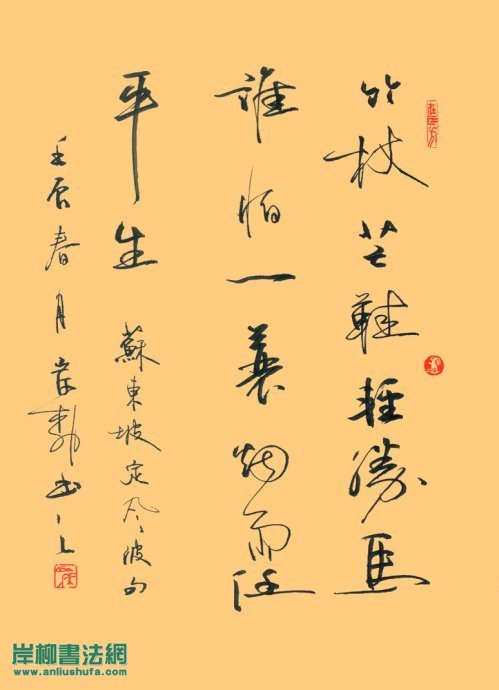 竹杖芒鞋輕勝馬
誰怕一蓑烟雨任
平生
蘇東坡定風波句
壬辰春月岸勤書之
岸柳書法網
www.anliushufa.com